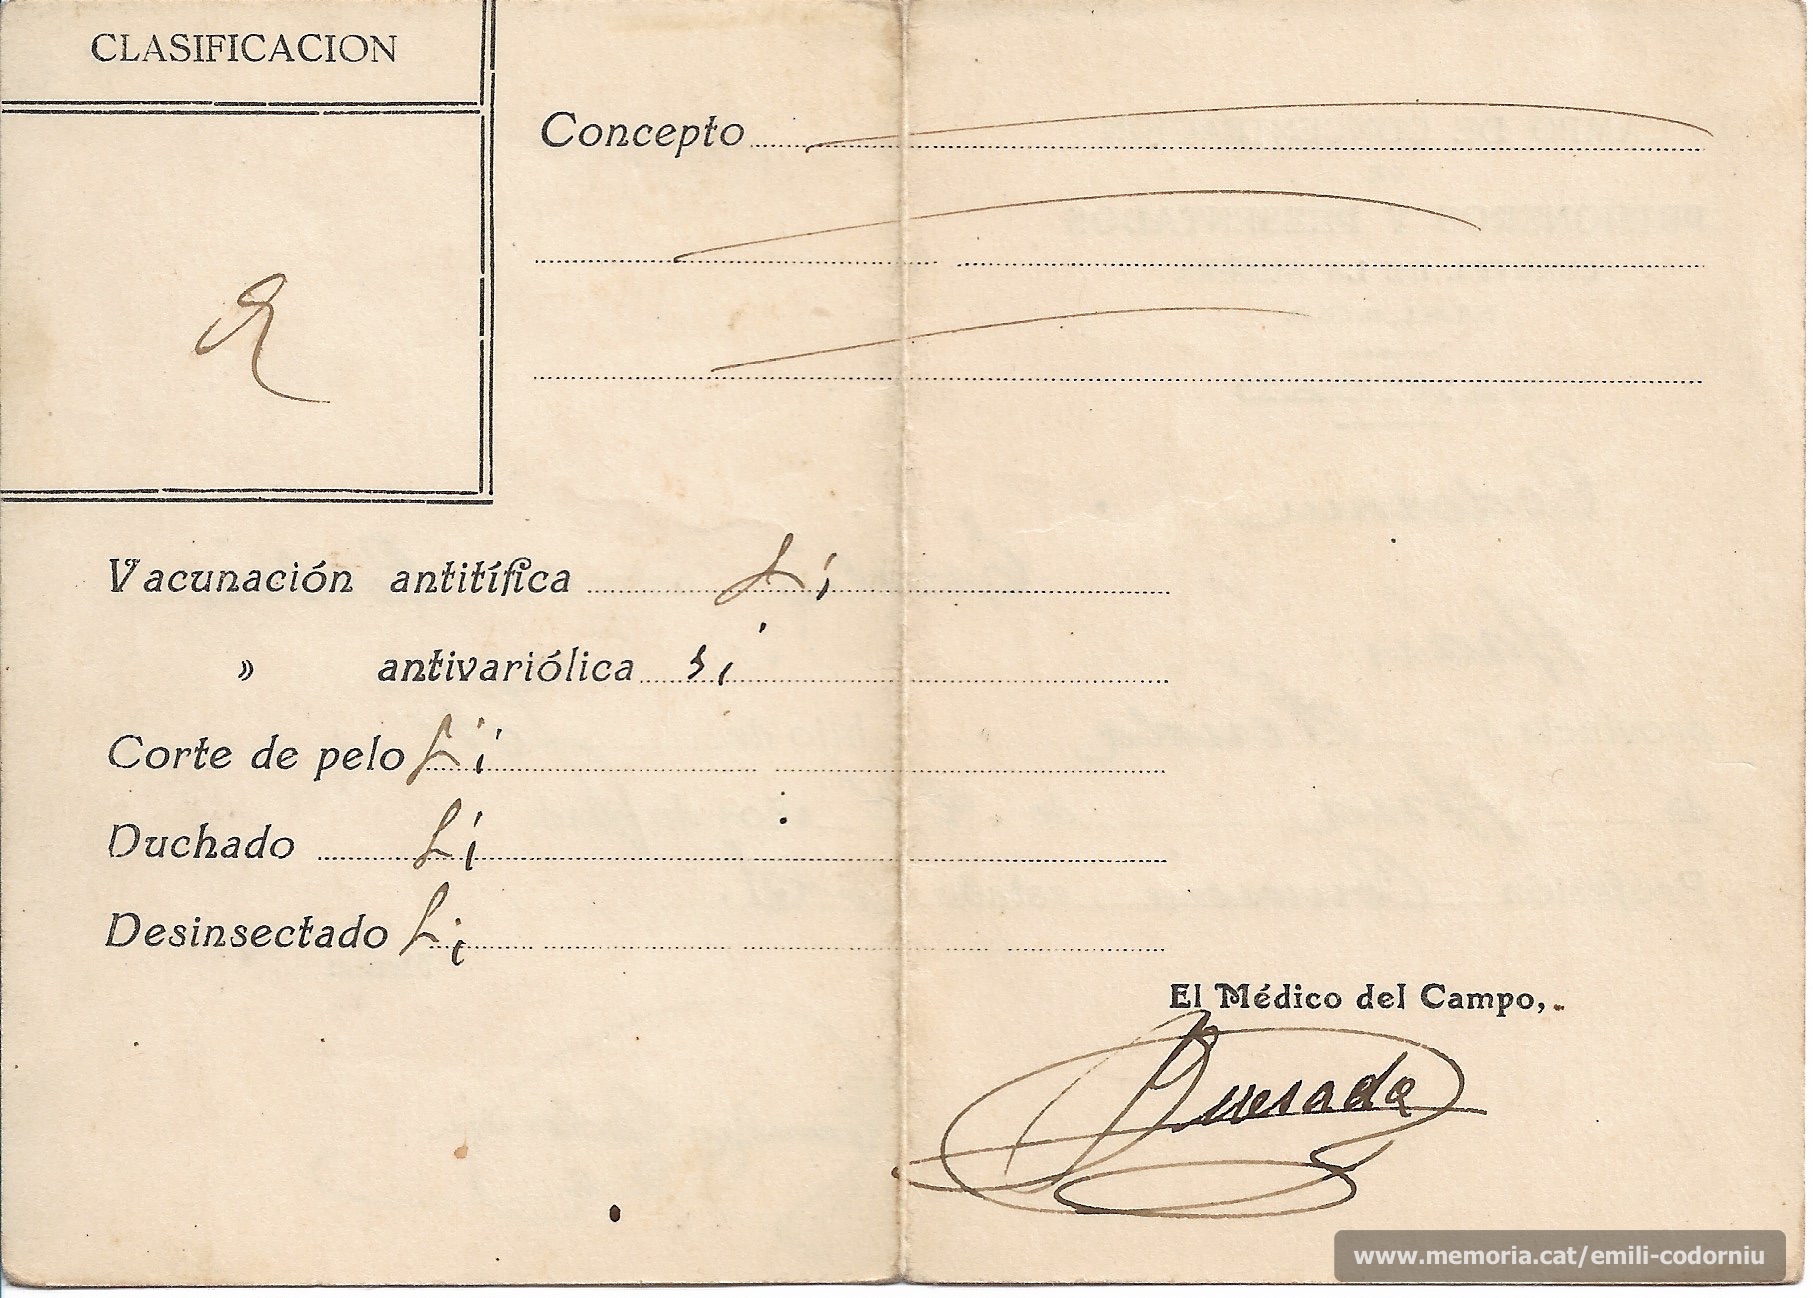 CLASIFICACION
Concepto
Vacunación antitífica Si
» antivariólica si
Corte de pelo Si
Duchado Si
Desinsectado Si
El Médico del Campo,
Quesada
www.memoria.cat/emili-codorniu